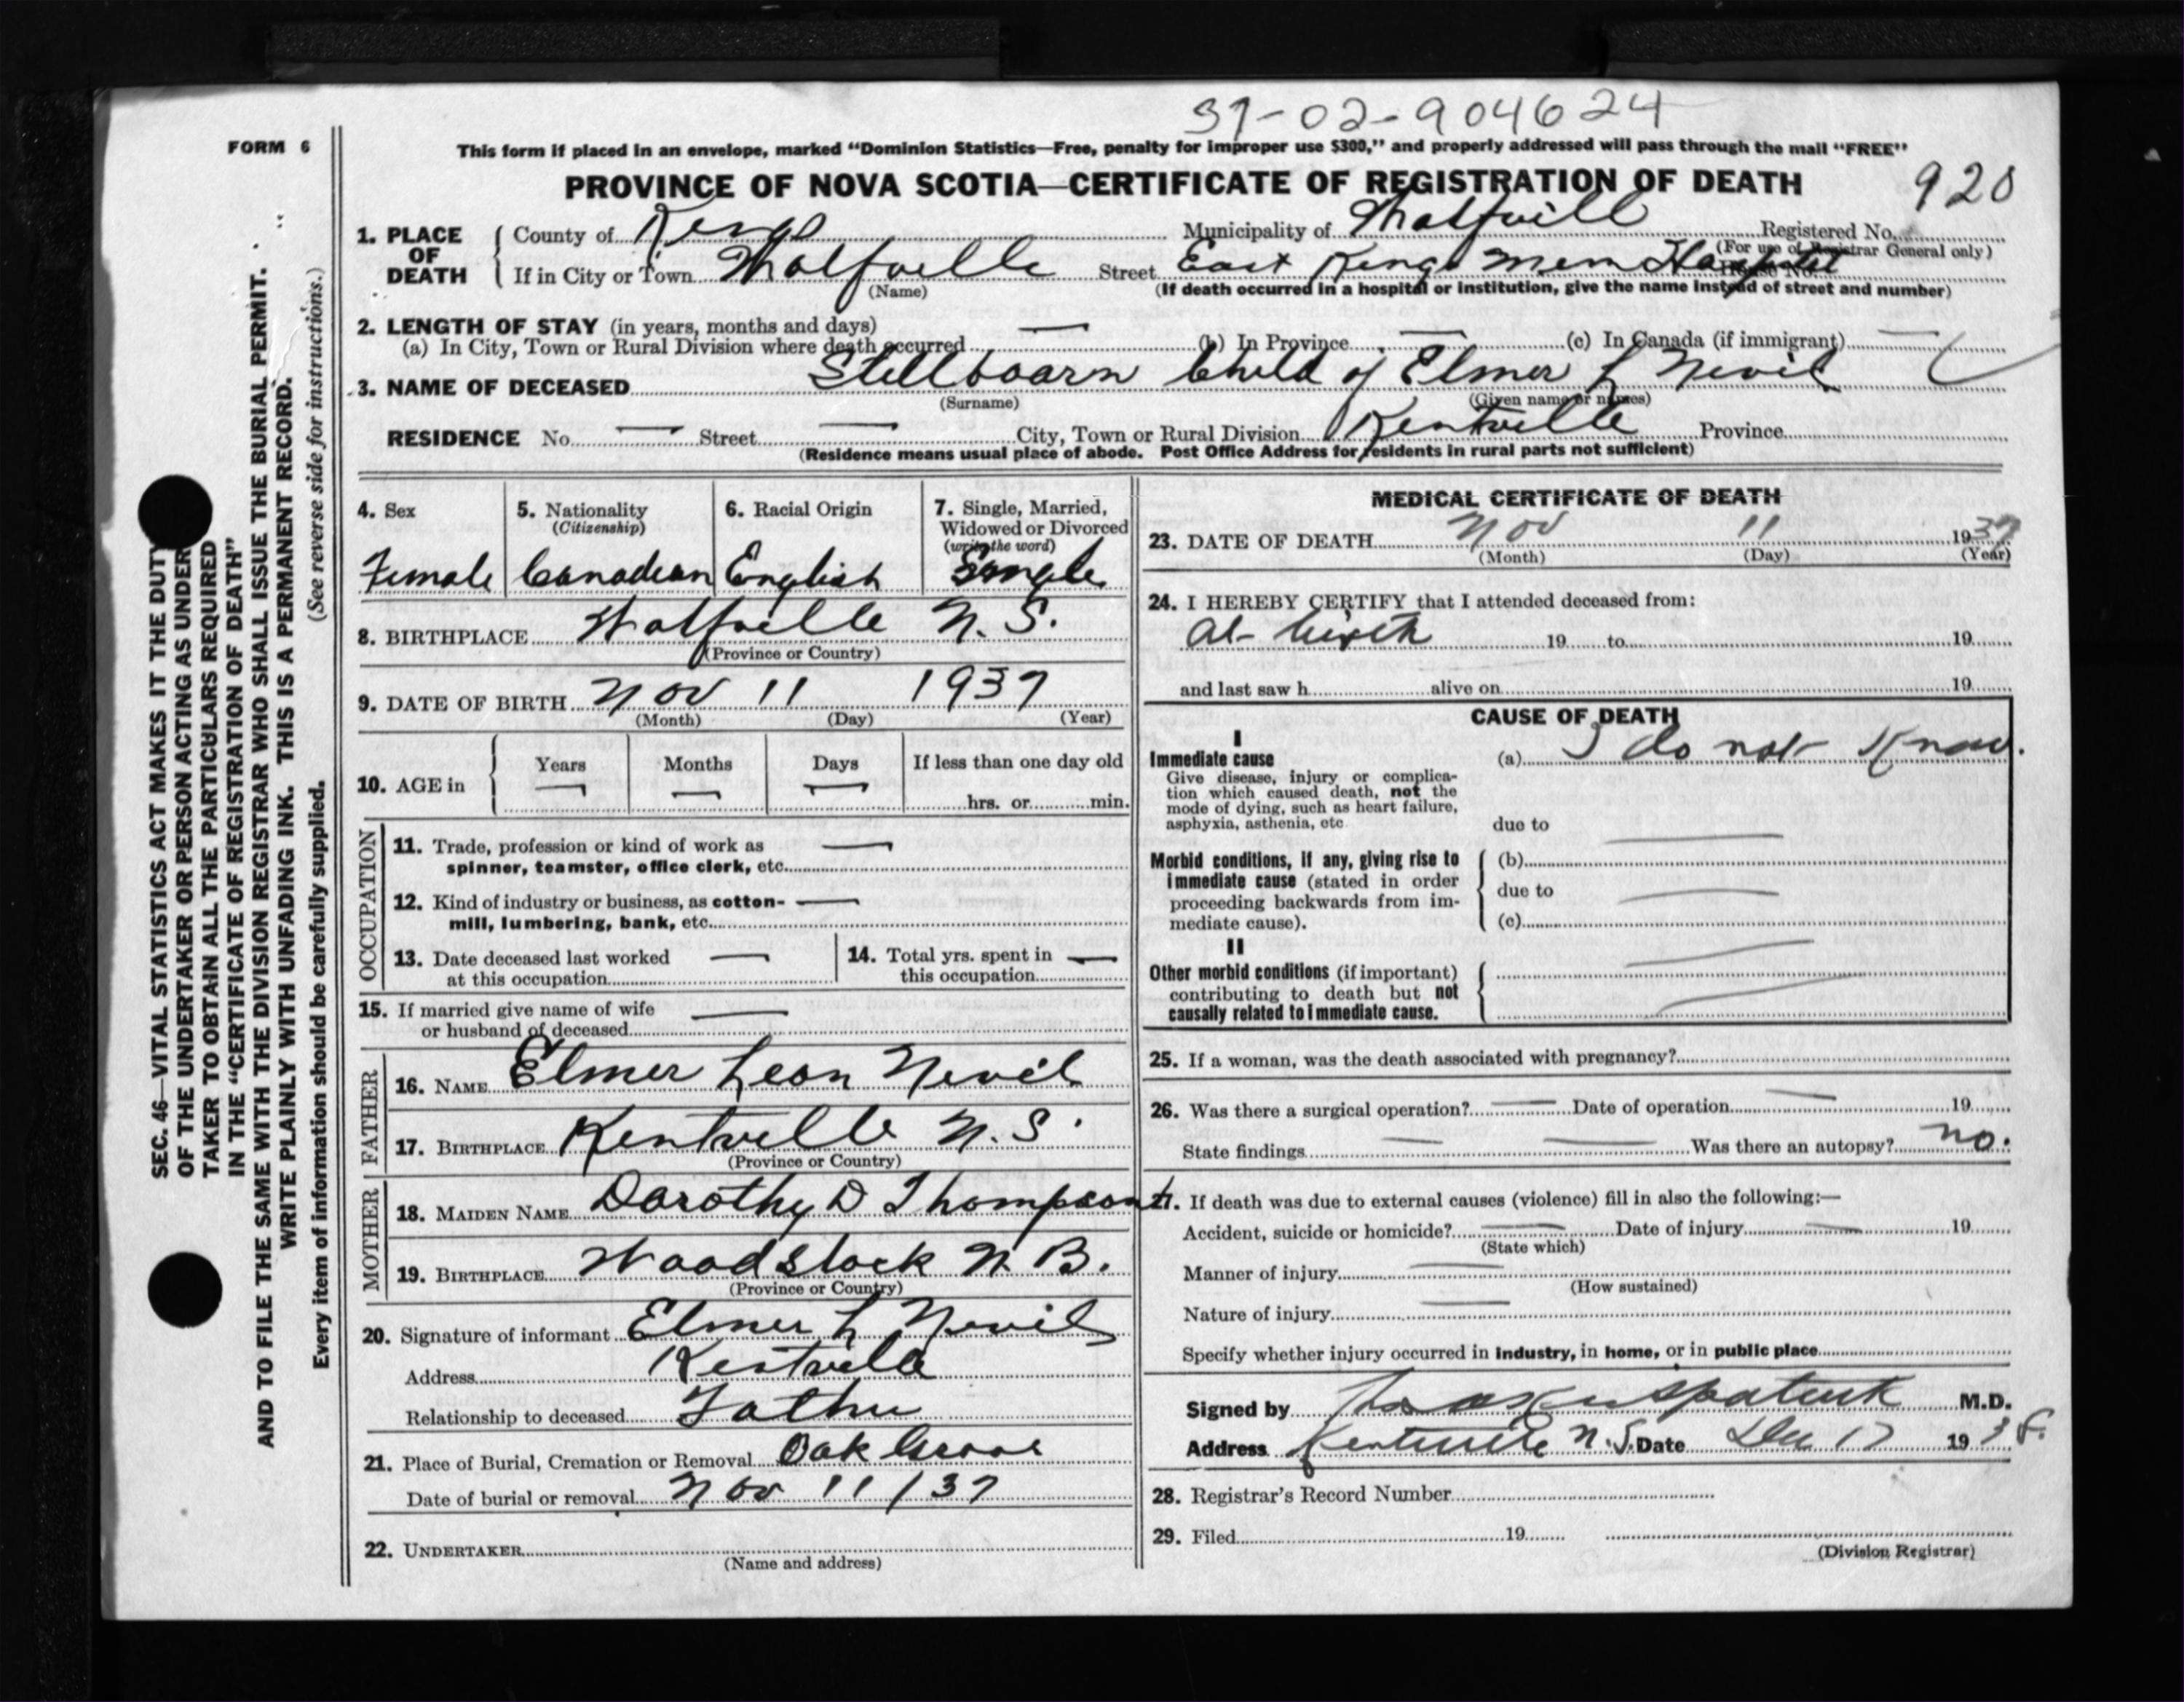 37-02-904624
FORM 6
This form if placed in an envelope, marked “Dominion Statistics—Free, penalty for improper use $300,” and properly addressed will pass through the mail “FREE”
PROVINCE OF NOVA SCOTIA—CERTIFICATE OF REGISTRATION OF DEATH
920
1. PLACE OF DEATH County of Kings Municipality of Wolfvill Registered No.
(For use of Registrar General only)
If in City or Town Wolfville Street East Kings Mem Hospital House No.
(Name) (If death occurred in a hospital or institution, give the name instead of street and number)
2. LENGTH OF STAY (in years, months and days)
(a) In City, Town or Rural Division where death occurred — (b) In Province — (c) In Canada (if immigrant) —
3. NAME OF DECEASED Stillboarn Child of Elmer L Nevil
(Surname) (Given name or names)
RESIDENCE No. — Street — City, Town or Rural Division Kentville Province
(Residence means usual place of abode. Post Office Address for residents in rural parts not sufficient)
SEC. 46—VITAL STATISTICS ACT MAKES IT THE DUTY
OF THE UNDERTAKER OR PERSON ACTING AS UNDER
TAKER TO OBTAIN ALL THE PARTICULARS REQUIRED
IN THE “CERTIFICATE OF REGISTRATION OF DEATH”
AND TO FILE THE SAME WITH THE DIVISION REGISTRAR WHO SHALL ISSUE THE BURIAL PERMIT.
WRITE PLAINLY WITH UNFADING INK. THIS IS A PERMANENT RECORD.
Every item of information should be carefully supplied. (See reverse side for instructions.)
4. Sex Female
5. Nationality (Citizenship) Canadian
6. Racial Origin English
7. Single, Married, Widowed or Divorced (write the word) Single
8. BIRTHPLACE Wolfville N. S.
(Province or Country)
9. DATE OF BIRTH Nov 11 1937
(Month) (Day) (Year)
10. AGE in Years — Months — Days — If less than one day old
hrs. or min.
OCCUPATION
11. Trade, profession or kind of work as —
spinner, teamster, office clerk, etc.
12. Kind of industry or business, as cotton- —
mill, lumbering, bank, etc.
13. Date deceased last worked —
at this occupation
14. Total yrs. spent in —
this occupation
15. If married give name of wife —
or husband of deceased
FATHER
16. NAME Elmer Leon Nevil
17. BIRTHPLACE Kentville N. S.
(Province or Country)
MOTHER
18. MAIDEN NAME Dorothy D Thompson
19. BIRTHPLACE Woodstock N. B.
(Province or Country)
20. Signature of informant Elmer L Nevil
Address Kentville
Relationship to deceased Father
21. Place of Burial, Cremation or Removal Oak Grove
Date of burial or removal Nov 11/37
22. UNDERTAKER
(Name and address)
MEDICAL CERTIFICATE OF DEATH
23. DATE OF DEATH Nov 11 1937
(Month) (Day) (Year)
24. I HEREBY CERTIFY that I attended deceased from:
at birth 19 to 19
and last saw h alive on 19
CAUSE OF DEATH
I
Immediate cause (a) I do not know.
Give disease, injury or complica-
tion which caused death, not the
mode of dying, such as heart failure,
asphyxia, asthenia, etc due to —
Morbid conditions, if any, giving rise to (b)
immediate cause (stated in order
proceeding backwards from im- due to —
mediate cause). (c)
II
Other morbid conditions (if important)
contributing to death but not
causally related to immediate cause.
25. If a woman, was the death associated with pregnancy?
26. Was there a surgical operation? — Date of operation — 19
State findings — — Was there an autopsy? no.
27. If death was due to external causes (violence) fill in also the following:—
Accident, suicide or homicide? — Date of injury — 19
(State which)
Manner of injury —
(How sustained)
Nature of injury —
Specify whether injury occurred in industry, in home, or in public place
Signed by M.D.
Address Kentville N.S. Date Dec 17 1938.
28. Registrar’s Record Number
29. Filed 19
(Division Registrar)